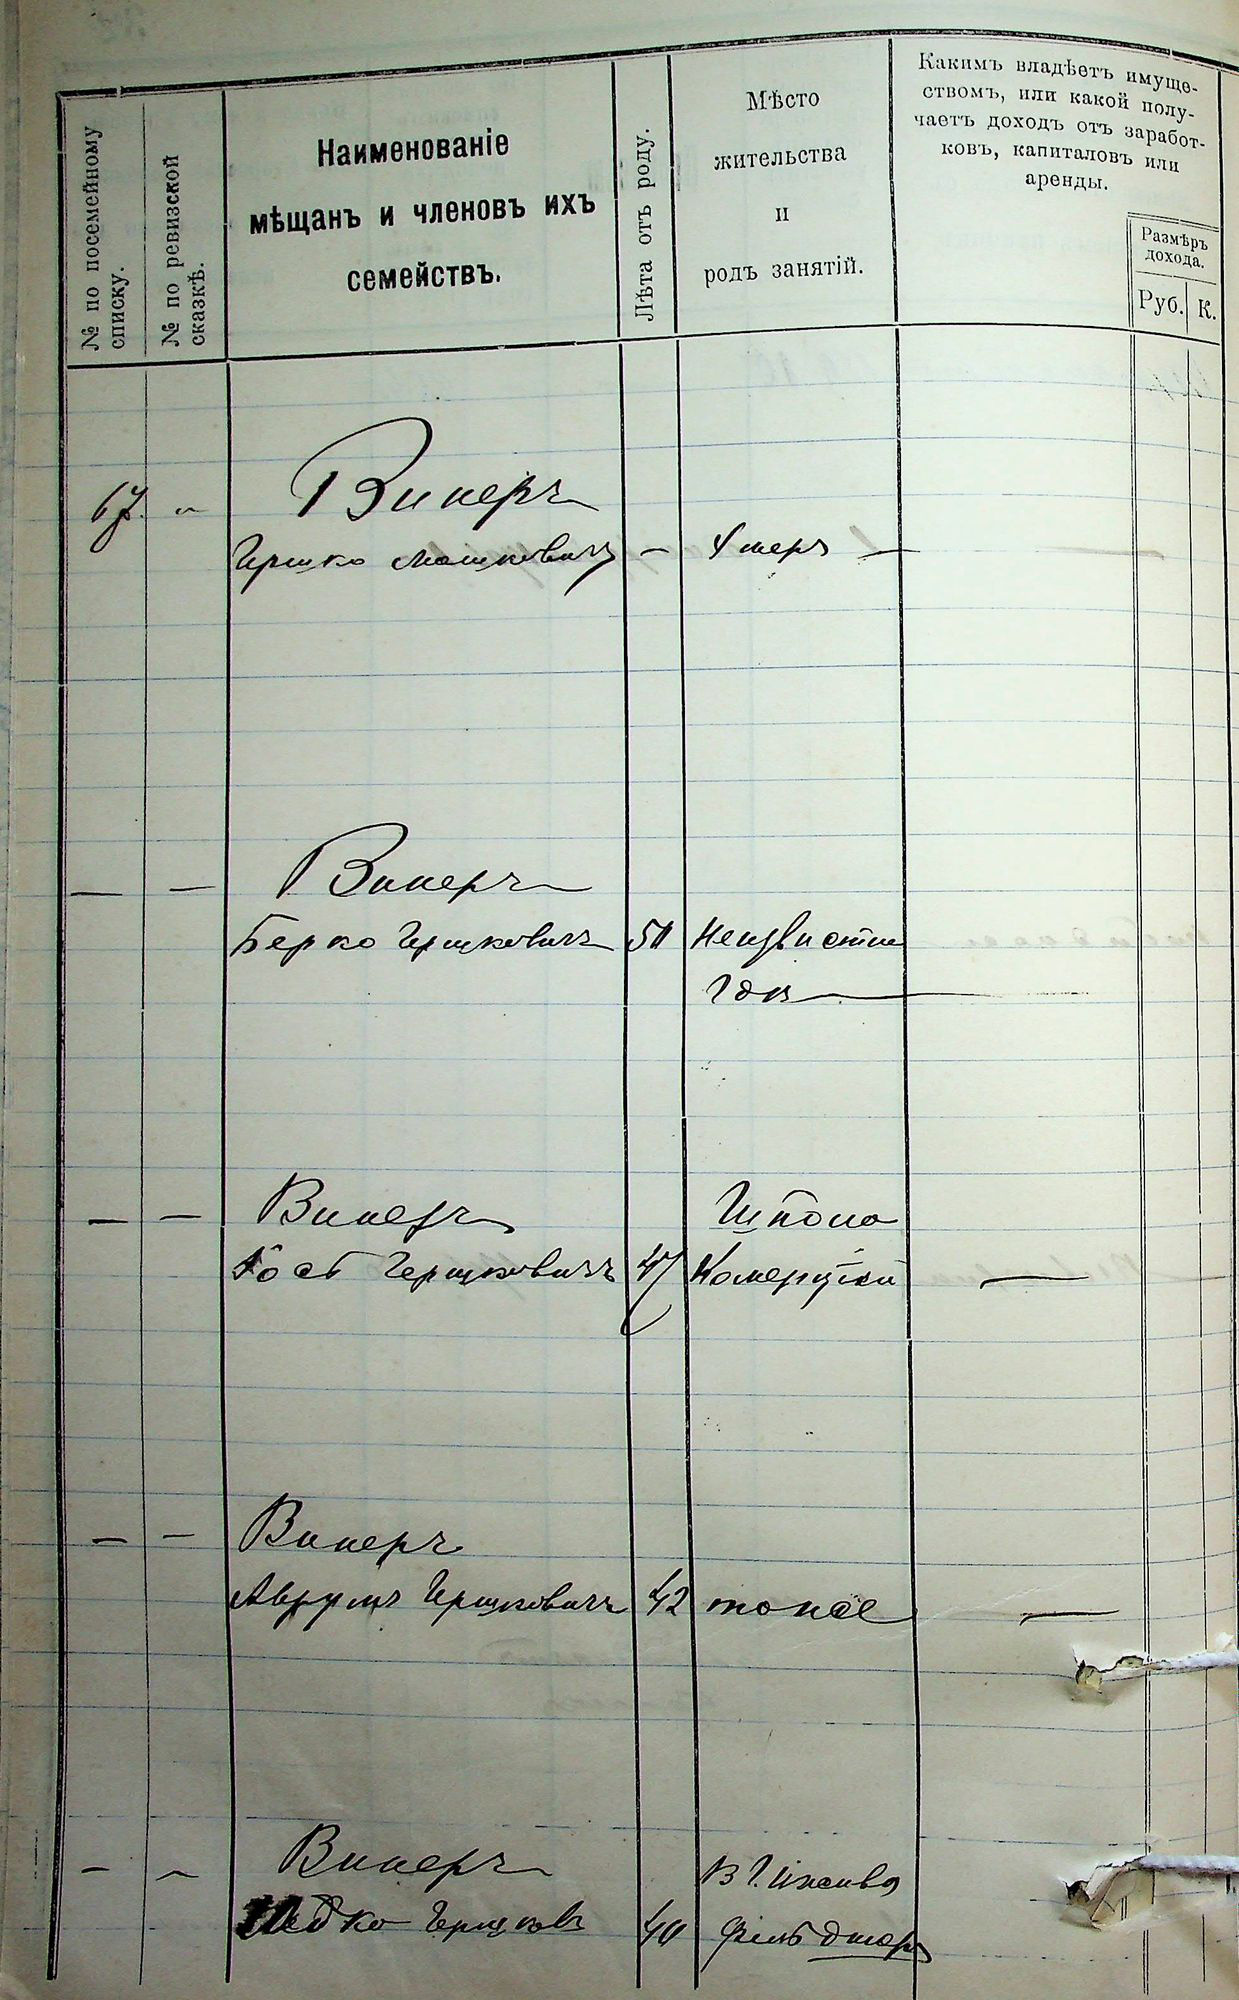 № по посемейному
списку.
№ по ревизской
сказкѣ.
Наименованіе
мѣщанъ и членовъ ихъ
семействъ.
Лѣта отъ роду.
Мѣсто
жительства
и
родъ занятій.
Какимъ владѣетъ имуще-
ствомъ, или какой полу-
чаетъ доходъ отъ заработ-
ковъ, капиталовъ или
аренды.
Размѣръ
дохода.
Руб. К.
67. Винеръ
Гершко Мошковичъ — Умеръ —
— — Винеръ
Берко Гершковичъ 50 Неизвистно
где —
— — Винеръ Шпола
Гершковичъ 47 —
— — Винеръ
Аврумъ Гершковичъ 42 тоже —
— — Винеръ В г.
Гершковъ 40